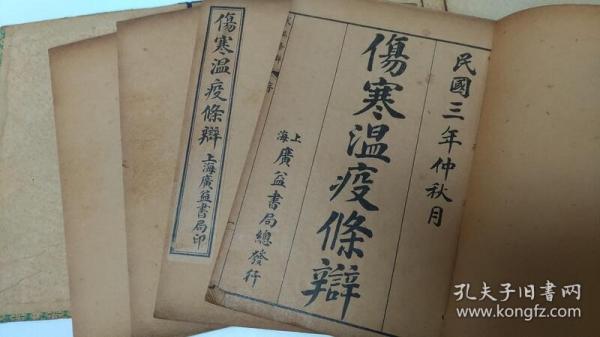 民國三年仲秋月
傷寒温疫條辯
上海
廣益書局總發行
傷寒温疫條辯
上海廣益書局印
孔夫子旧书网
www.kongfz.com